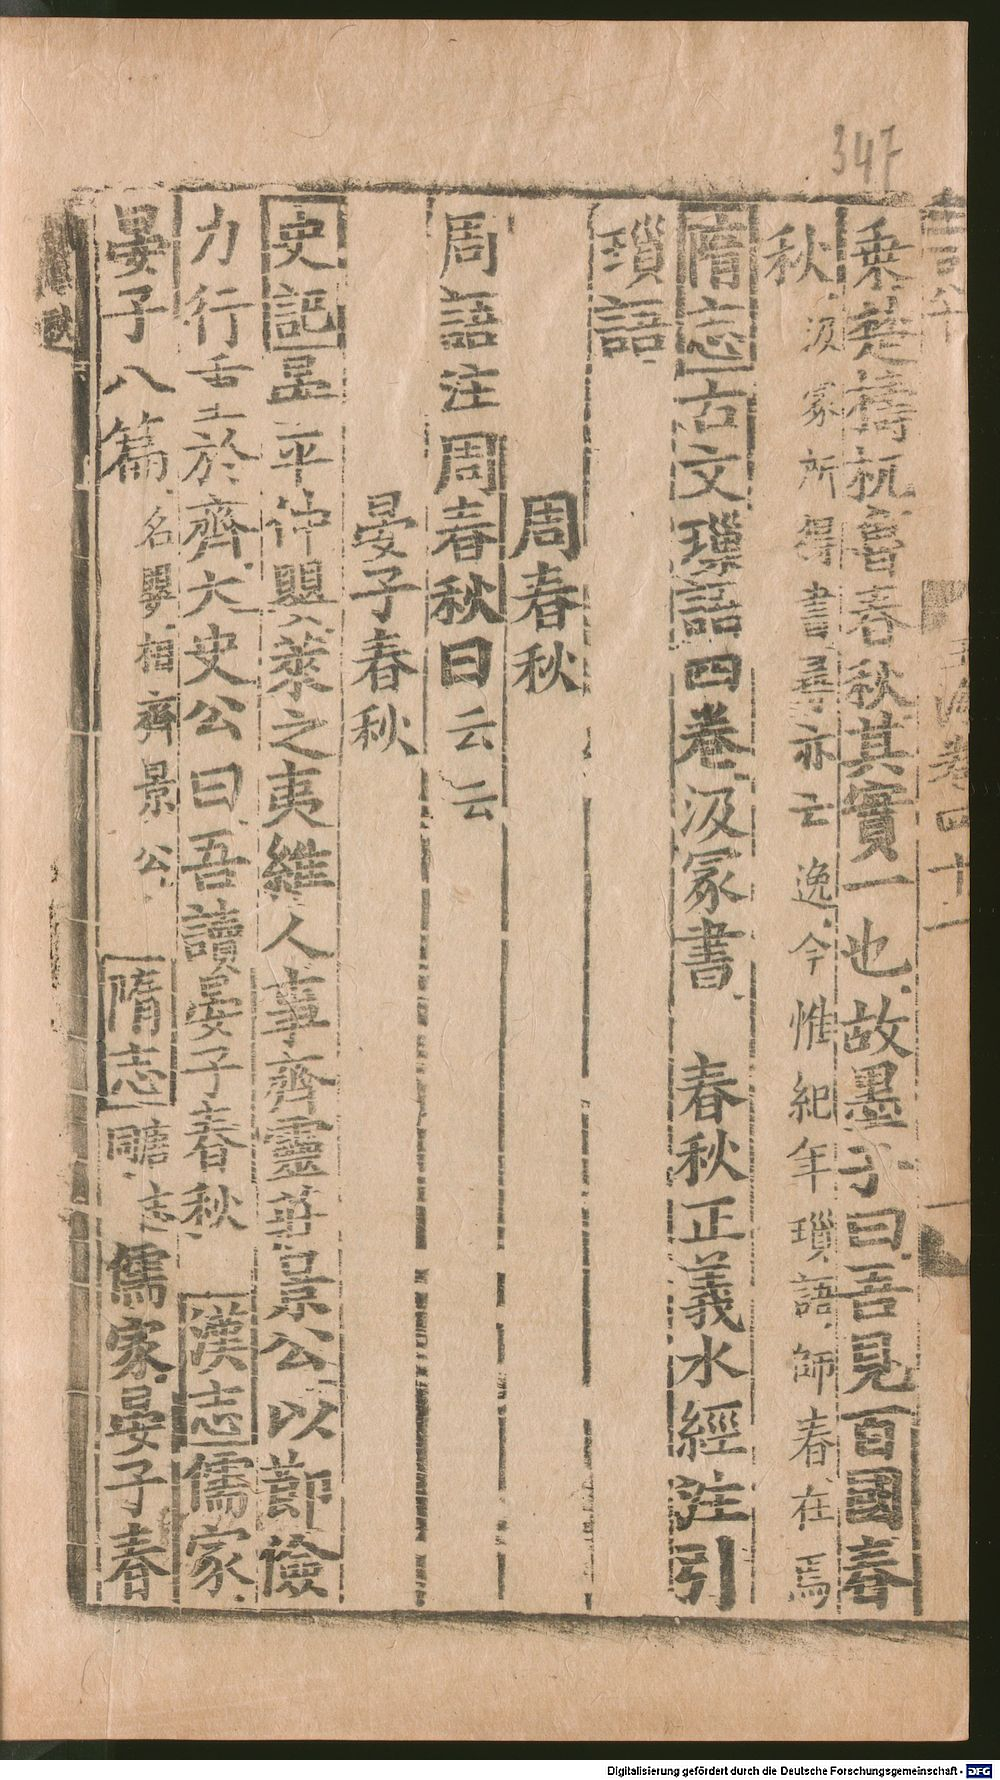 347
乗楚檮杌魯春秋其實一也故墨子曰吾見百國春
秋汲冢所得書尋亦亡逸今惟紀年瑣語師春在焉
隋志古文璅語四卷汲冢書 春秋正義水經注引
瑣語
周春秋
周語注周春秋曰云云
晏子春秋
史記晏平仲嬰萊之夷維人事齊靈莊景公以節儉
力行重於齊大史公曰吾讀晏子春秋 漢志儒家
晏子八篇名嬰相齊景公 隋志 志儒家晏子春
Digitalisierung gefördert durch die Deutsche Forschungsgemeinschaft - DFG